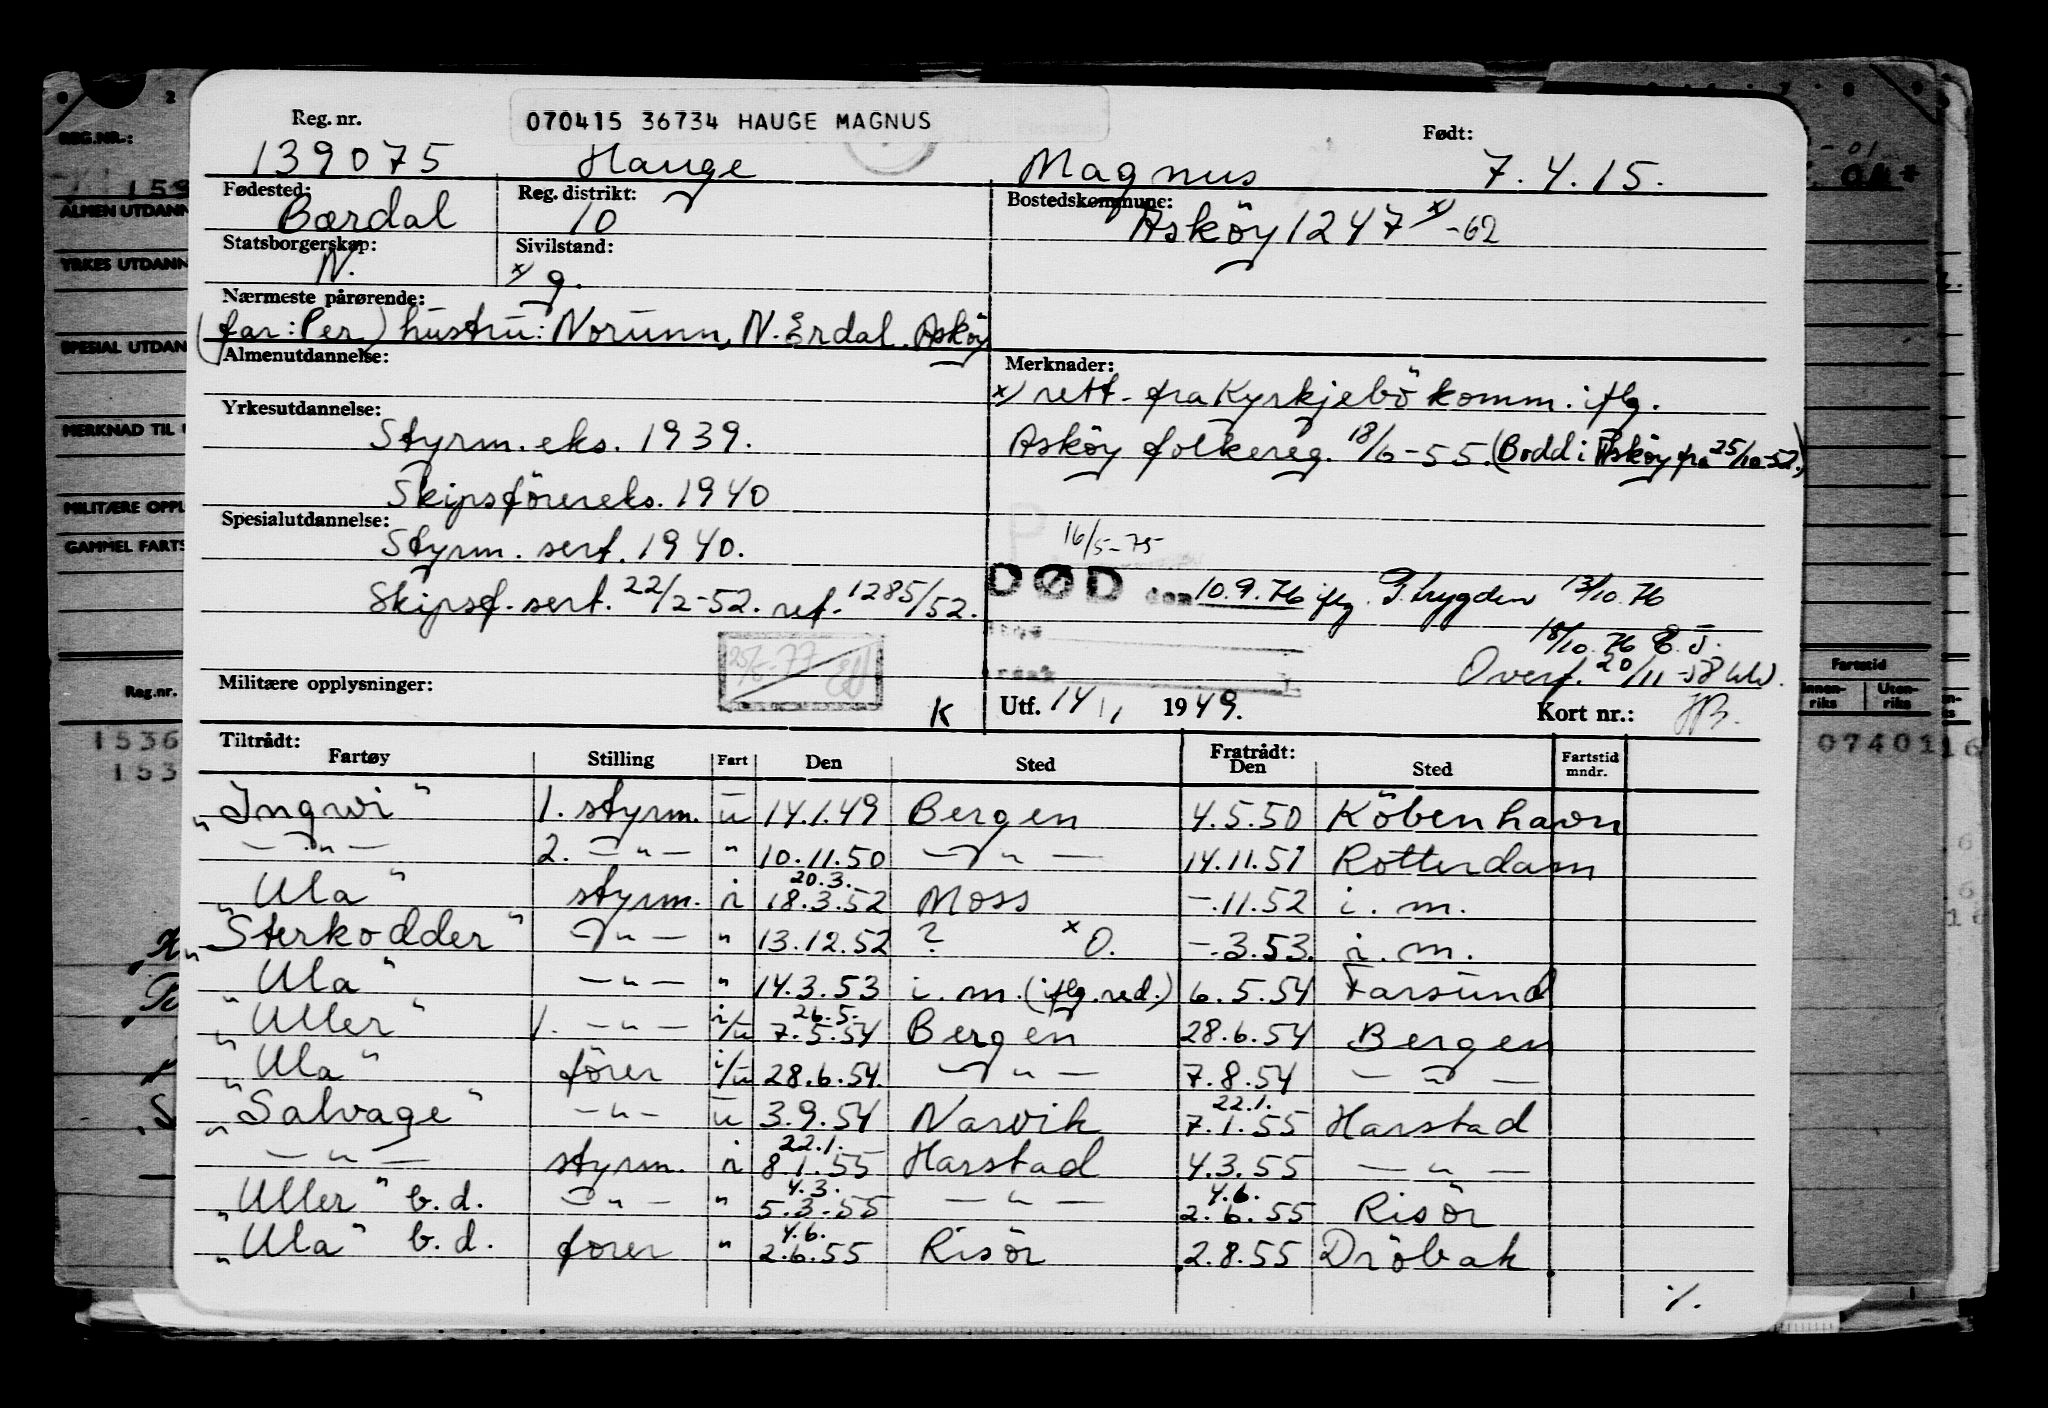 Reg. nr. 070415 36734 HAUGE MAGNUS Født:
139075 Hauge Magnus 7.4.15.
Fødested: Reg. distrikt: Bostedskommune:
Bærdal 10 Asköy 1247 x) -62
Statsborgerskap: Sivilstand:
N. x) g.
Nærmeste pårørende:
(far: Per) hustru: Norunn, N. Erdal. Asköy
Almenutdannelse: Merknader:
x) rett. fra Kyrkjebö komm. iflg.
Yrkesutdannelse:
Styrm. eks. 1939. Asköy folkereg. 18/6-55. (Bodd i Asköy fra 25/10-52.)
Skipsförereks. 1940
Spesialutdannelse:
Styrm. sert. 1940. 16/5-75
DØD den 10.9.76 iflg. P.trygden 13/10.76
Skipsf. sert. 22/2-52. ref. 1285/52.
18/10.76 E.J.
25/5-77 Overf. 20/11-58
Militære opplysninger: K Utf. 14/1 1949. Kort nr.:
Tiltrådt: Fratrådt:
Fartøy Stilling Fart Den Sted Den Sted Fartstid mndr.
"Ingwi" 1. styrm. u 14.1.49 Bergen 4.5.50 Köbenhavn
— " — 2. — " — " 10.11.50 — " — 14.11.51 Rotterdam
20.3.
"Ula" styrm. i 18.3.52 Moss -.11.52 i. m.
"Sterkodder" — " — " 13.12.52 ? x O. -.3.53. i. m.
"Ula" — " — " 14.3.53 i. m. (iflg. red.) 6.5.54 Farsund
26.5.
"Uller" 1. — " — i/u 7.5.54 Bergen 28.6.54 Bergen
"Ula" förer i/u 28.6.54. — " — 7.8.54 — " —
22.1.
"Salvage" — " — u 3.9.54 Narvik 7.1.55 Harstad
22.1.
— " — styrm. i 8.1.55 Harstad 4.3.55 — " —
4.3. 4.6.
"Uller" b.d. — " — " 5.3.55 — " — 2.6.55 Risör
4.6.
"Ula" b.d. förer " 2.6.55 Risör 2.8.55 Dröbak
./.
REG.NR.:
159
ALMEN UTDANN
YRKES UTDANN
SPESIAL UTDAN
MERKNAD TIL
MILITÆRE OPPL
GAMMEL FARTS
Reg.nr.
1536
153
Fartstid
Innen-riks Uten-riks
074011